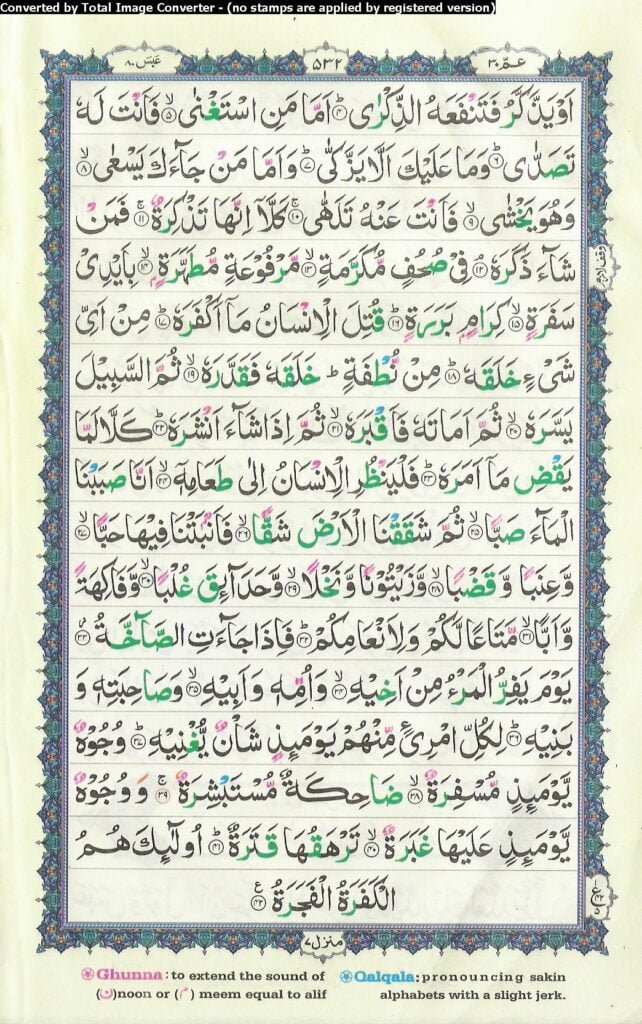 Converted by Total Image Converter - (no stamps are applied by registered version)
عَبَسَ ٨٠
٥٣٢
عـمّ ٣٠
اَوۡ يَذَّكَّرُ فَتَنۡفَعَهُ الذِّكۡرٰى ؕ‏﴿۴﴾ اَمَّا مَنِ اسۡتَغۡنٰى ۙ‏﴿۵﴾ فَاَنۡتَ لَهٗ
تَصَدّٰى ؕ‏﴿۶﴾ وَمَا عَلَيۡكَ اَلَّا يَزَّكّٰى ؕ‏﴿۷﴾ وَاَمَّا مَنۡ جَآءَكَ يَسۡعٰى ۙ‏﴿۸﴾
وَهُوَ يَخۡشٰى ۙ‏﴿۹﴾ فَاَنۡتَ عَنۡهُ تَلَهّٰى‌ ۚ‏﴿۱۰﴾ كَلَّاۤ اِنَّهَا تَذۡكِرَةٌ ۚ‏﴿۱۱﴾ فَمَنۡ
شَآءَ ذَكَرَهٗ‌ ۘ‏﴿۱۲﴾ فِىۡ صُحُفٍ مُّكَرَّمَةٍ ۙ‏﴿۱۳﴾ مَّرۡفُوۡعَةٍ مُّطَهَّرَةٍ ۙ‏﴿۱۴﴾ بِاَيۡدِىۡ
سَفَرَةٍ ۙ‏﴿۱۵﴾ كِرَامٍۢ بَرَرَةٍ ؕ‏﴿۱۶﴾ قُتِلَ الۡاِنۡسَانُ مَاۤ اَكۡفَرَهٗ ؕ‏﴿۱۷﴾ مِنۡ اَىِّ
شَىۡءٍ خَلَقَهٗ ؕ‏﴿۱۸﴾ مِنۡ نُّطۡفَةٍ ؕ خَلَقَهٗ فَقَدَّرَهٗ ۙ‏﴿۱۹﴾ ثُمَّ السَّبِيۡلَ
يَسَّرَهٗ ۙ‏﴿۲۰﴾ ثُمَّ اَمَاتَهٗ فَاَقۡبَرَهٗ ۙ‏﴿۲۱﴾ ثُمَّ اِذَا شَآءَ اَنۡشَرَهٗ ؕ‏﴿۲۲﴾ كَلَّا لَمَّا
يَقۡضِ مَاۤ اَمَرَهٗ ؕ‏﴿۲۳﴾ فَلۡيَنۡظُرِ الۡاِنۡسَانُ اِلٰى طَعَامِهٖۤ ۙ‏﴿۲۴﴾ اَنَّا صَبَبۡنَا
الۡمَآءَ صَبًّا ۙ‏﴿۲۵﴾ ثُمَّ شَقَقۡنَا الۡاَرۡضَ شَقًّا ۙ‏﴿۲۶﴾ فَاَنۡۢبَتۡنَا فِيۡهَا حَبًّا ۙ‏﴿۲۷﴾
وَّعِنَبًا وَّقَضۡبًا ۙ‏﴿۲۸﴾ وَّزَيۡتُوۡنًا وَّنَخۡلًا ۙ‏﴿۲۹﴾ وَّحَدَآٮِٕقَ غُلۡبًا ۙ‏﴿۳۰﴾ وَّفَاكِهَةً
وَّاَبًّا ۙ‏﴿۳۱﴾ مَّتَاعًا لَّكُمۡ وَلِاَنۡعَامِكُمۡؕ‏﴿۳۲﴾ فَاِذَا جَآءَتِ الصَّآخَّةُ ‏﴿۳۳﴾
يَوۡمَ يَفِرُّ الۡمَرۡءُ مِنۡ اَخِيۡهِۙ‏﴿۳۴﴾ وَاُمِّهٖ وَاَبِيۡهِۙ‏﴿۳۵﴾ وَصَاحِبَتِهٖ وَ
بَنِيۡهِؕ‏﴿۳۶﴾ لِكُلِّ امۡرِیءٍ مِّنۡهُمۡ يَوۡمَٮِٕذٍ شَاۡنٌ يُّغۡنِيۡهِؕ‏﴿۳۷﴾ وُجُوۡهٌ
يَّوۡمَٮِٕذٍ مُّسۡفِرَةٌ ۙ‏﴿۳۸﴾ ضَاحِكَةٌ مُّسۡتَبۡشِرَةٌ‌ ۚ‏﴿۳۹﴾ وَ وُجُوۡهٌ
يَّوۡمَٮِٕذٍ عَلَيۡهَا غَبَرَةٌ ۙ‏﴿۴۰﴾ تَرۡهَقُهَا قَتَرَةٌ ؕ‏﴿۴۱﴾ اُولٰٓٮِٕكَ هُمُ
الۡكَفَرَةُ الۡفَجَرَةُ ‏﴿۴۲﴾
وقف لازم
منزل ٧
Ghunna: to extend the sound of (ن) noon or (م) meem equal to alif
Qalqala: pronouncing sakin alphabets with a slight jerk.